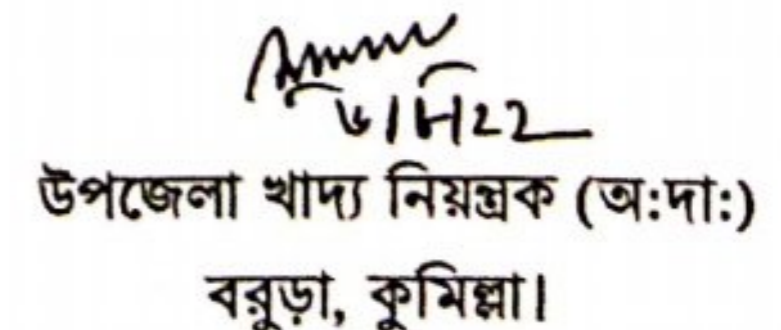 উপজেলা খাদ্য নিয়ন্ত্রক (অ:দা:)
বরুড়া, কুমিল্লা।